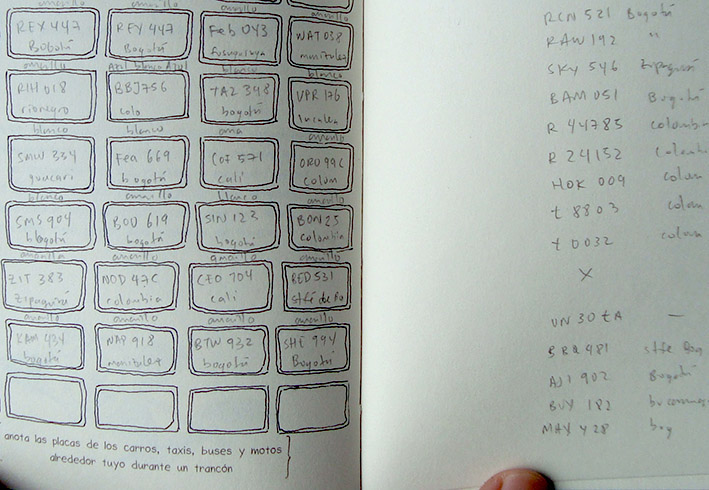 amarillo amarillo amarillo
REX 447 REY 447 Feb 043 WAT 038
Bogotá Bogotá fusagasuga manizales
amarillo Azul blanco Azul blanco blanco
RIH 018 BBJ756 TAZ 348 VPR 176
rionegro colo bogotá
blanco blanco ama amarillo
SMW 334 Fea 669 COF 571 ORO 99C
guacari bogotá cali Colom
blanco amarillo blanco amarillo
SMS 904 BOD 619 SIN 123 BON 25
bogotá bogotá bogotá colombia
amarilla amarillo amarillo amarillo
ZIT 383 MOD 47C CEO 704 BED 531
Zipaquirá colombia cali stfé de
amarillo amarillo amarillo amarillo
KAM 434 NAP 918 BTW 932 SHE 994
bogotá manizales bogotá Bogotá
anota las placas de los carros, taxis, buses y motos
alrededor tuyo durante un trancón
RCN 521 Bogotá
RAW 192 "
SKY 546 Zipaquirá
BAM 051 Bogotá
R 44785 colombia
R 24152 colombia
HOK 009 colom
t 8803 colom
t 0032 colom
X
UN 30 tA —
BRQ 481 stfe Bog
AJI 902 Bogotá
BUY 182
MAX 428 bog